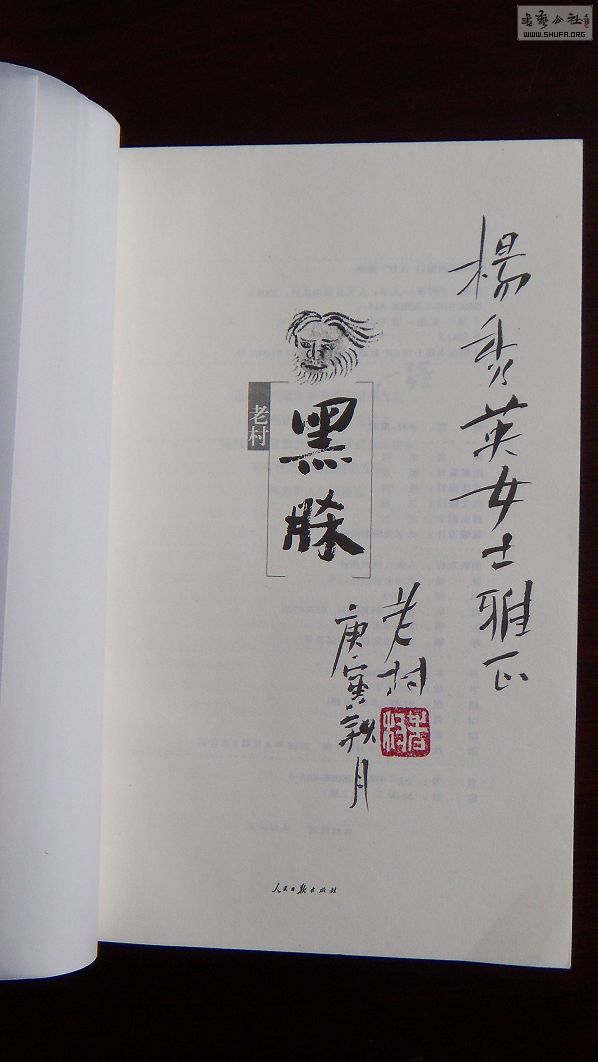 书艺公社
WWW.SHUFA.ORG
楊秀英女士雅正
老村
庚寅秋月
老村
老村
黑脎
人民日报出版社